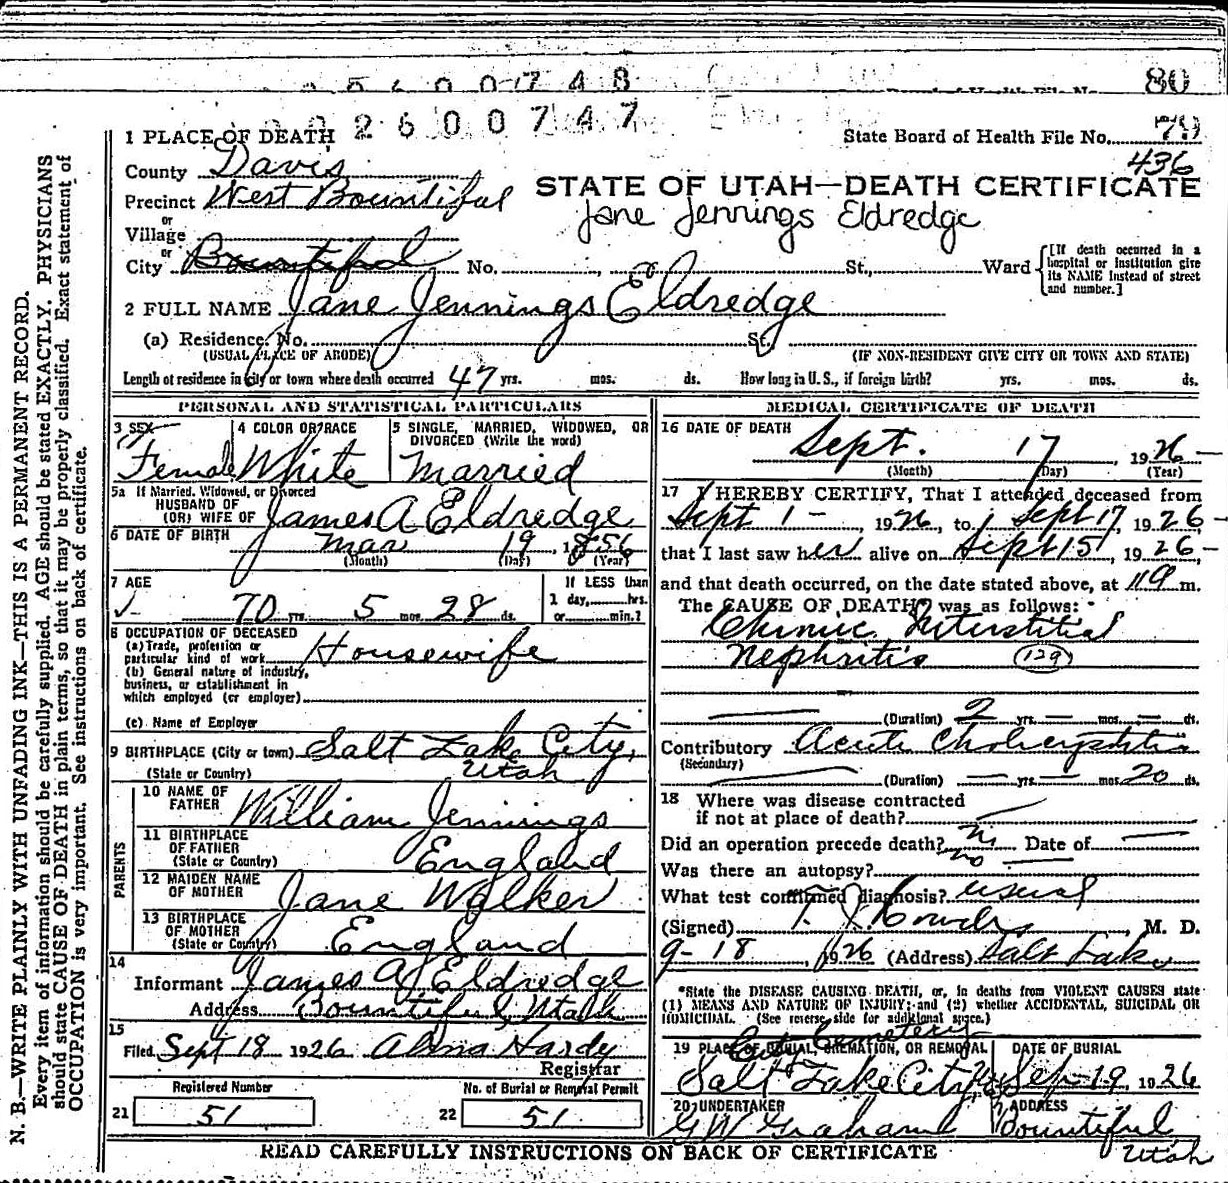 5 6 0 0 7 4 8
80
2 6 0 0 7 4 7
1 PLACE OF DEATH
State Board of Health File No. 79
436
County Davis
Precinct West Bountiful
STATE OF UTAH—DEATH CERTIFICATE
Jane Jennings Eldredge
or
Village
or
City Bountiful No. St., Ward
[If death occurred in a hospital or institution give its NAME instead of street and number.]
2 FULL NAME Jane Jennings Eldredge
(a) Residence. No. St.
(USUAL PLACE OF ABODE)
(IF NON-RESIDENT GIVE CITY OR TOWN AND STATE)
Length of residence in city or town where death occurred 47 yrs. mos. ds. How long in U. S., if foreign birth? yrs. mos. ds.
PERSONAL AND STATISTICAL PARTICULARS
3 SEX
Female
4 COLOR OR RACE
White
5 SINGLE, MARRIED, WIDOWED, OR DIVORCED (Write the word)
Married
5a If Married, Widowed, or Divorced
HUSBAND OF
(OR) WIFE OF James A Eldredge
6 DATE OF BIRTH Mar 19, 1856
(Month) (Day) (Year)
7 AGE
70 yrs. 5 mos. 28 ds.
If LESS than
1 day, hrs.
or min.?
8 OCCUPATION OF DECEASED
(a) Trade, profession or
particular kind of work Housewife
(b) General nature of industry,
business, or establishment in
which employed (or employer)
(c) Name of Employer
9 BIRTHPLACE (City or town) Salt Lake City,
(State or Country) Utah
PARENTS
10 NAME OF
FATHER William Jennings
11 BIRTHPLACE
OF FATHER
(State or Country) England
12 MAIDEN NAME
OF MOTHER Jane Walker
13 BIRTHPLACE
OF MOTHER
(State or Country) England
14
Informant James A Eldredge
Address Bountiful, Utah
15
Filed Sept 18 1926 Alma Hardy
Registrar
Registered Number
21 51
No. of Burial or Removal Permit
22 51
MEDICAL CERTIFICATE OF DEATH
16 DATE OF DEATH
Sept. 17 1926
(Month) (Day) (Year)
17 I HEREBY CERTIFY, That I attended deceased from
Sept 1 - , 1926, to Sept 17, 1926
that I last saw her alive on Sept 15, 1926
and that death occurred, on the date stated above, at m.
The CAUSE OF DEATH was as follows:
Chronic Interstitial
Nephritis (129)
(Duration) 2 yrs. mos. ds.
Contributory Acute Cholecystitis
(Secondary)
(Duration) yrs. mos. 20 ds.
18 Where was disease contracted
if not at place of death?
Did an operation precede death? no Date of
Was there an autopsy? no
What test confirmed diagnosis? usual
(Signed) , M. D.
9-18, 1926 (Address) Salt Lake
*State the DISEASE CAUSING DEATH, or, in deaths from VIOLENT CAUSES state
(1) MEANS AND NATURE OF INJURY; and (2) whether ACCIDENTAL, SUICIDAL OR
HOMICIDAL. (See reverse side for additional space.)
19 PLACE OF BURIAL, CREMATION, OR REMOVAL
City Cemetery
Salt Lake City
DATE OF BURIAL
Sep-19, 1926
20 UNDERTAKER
G W Graham
ADDRESS
Bountiful
Utah
READ CAREFULLY INSTRUCTIONS ON BACK OF CERTIFICATE
N. B.—WRITE PLAINLY WITH UNFADING INK—THIS IS A PERMANENT RECORD.
Every item of information should be carefully supplied. AGE should be stated EXACTLY. PHYSICIANS
should state CAUSE OF DEATH in plain terms, so that it may be properly classified. Exact statement of
OCCUPATION is very important. See instructions on back of certificate.